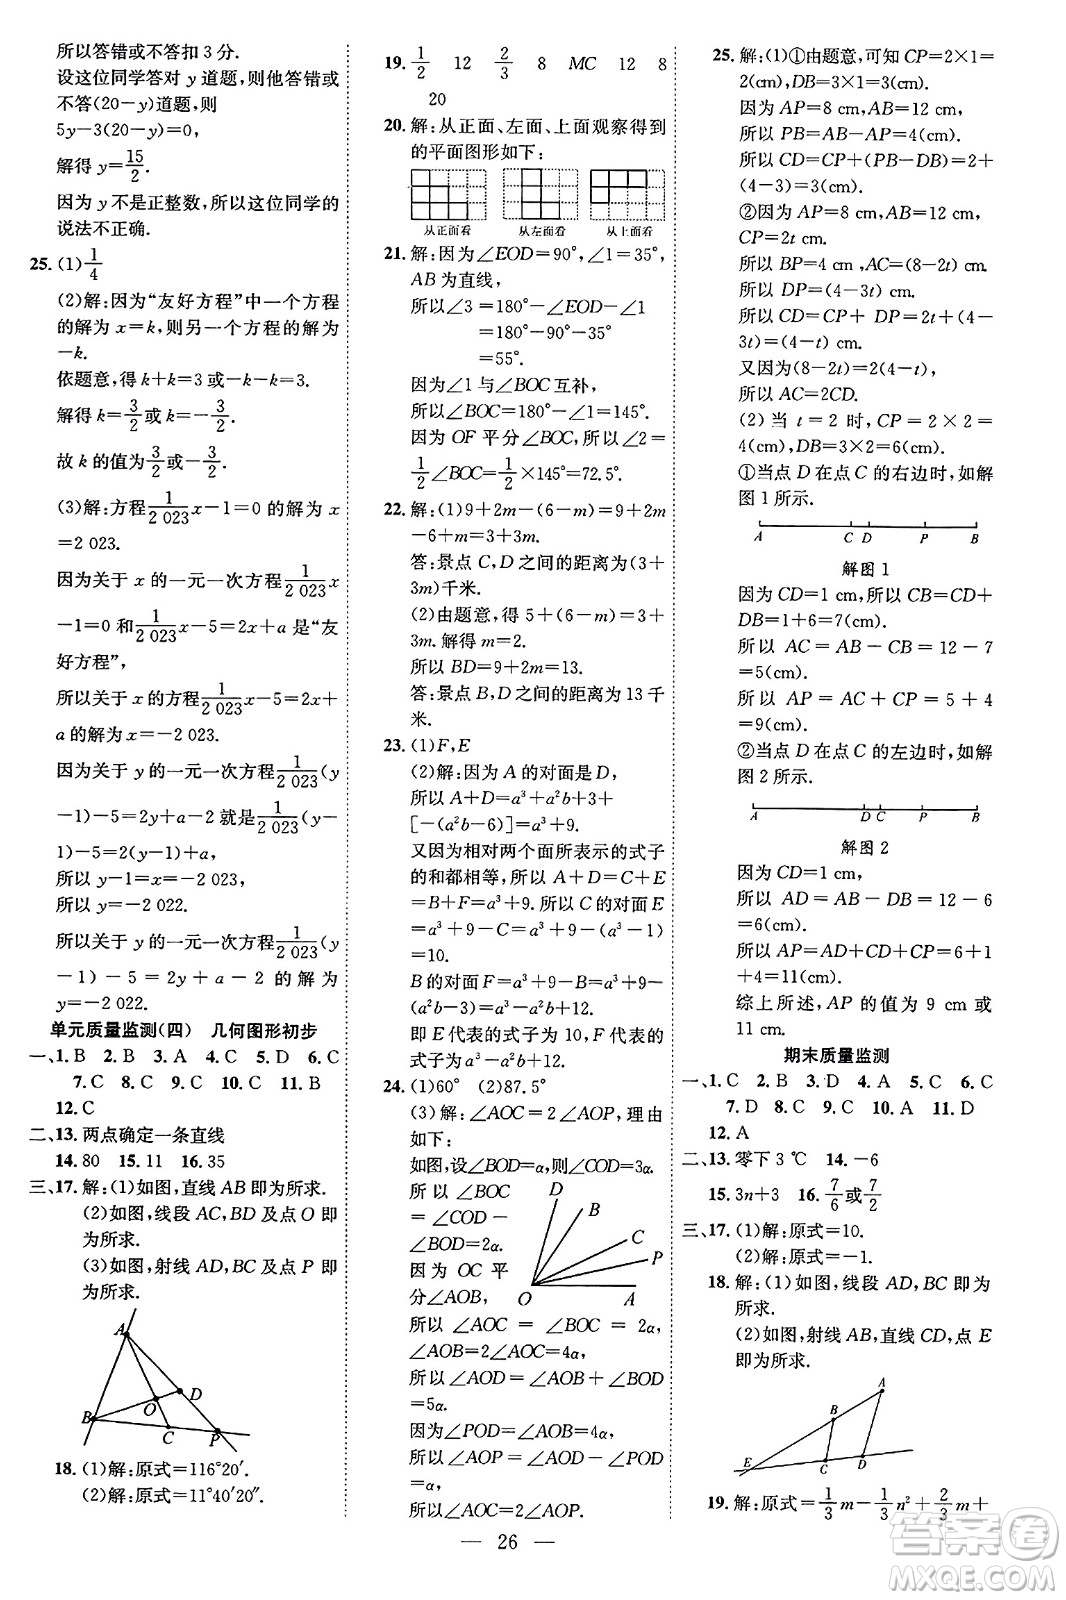 所以答错或不答扣 3 分.
设这位同学答对 y 道题，则他答错或
不答(20－y)道题，则
5y－3(20－y)＝0，
解得 y＝15/2.
因为 y 不是正整数，所以这位同学的
说法不正确.
25. (1)1/4
(2)解：因为“友好方程”中一个方程
的解为 x＝k，则另一个方程的解为
－k.
依题意，得 k＋k＝3 或－k－k＝3.
解得 k＝3/2 或 k＝－3/2.
故 k 的值为 3/2 或－3/2.
(3)解：方程 1/2 023 x－1＝0 的解为 x
＝2 023.
因为关于 x 的一元一次方程 1/2 023 x
－1＝0 和 1/2 023 x－5＝2x＋a 是“友
好方程”，
所以关于 x 的方程 1/2 023 x－5＝2x＋
a 的解为 x＝－2 023.
因为关于 y 的一元一次方程 1/2 023 (y
－1)－5＝2y＋a－2 就是 1/2 023 (y－
1)－5＝2(y－1)＋a，
所以 y－1＝－2 023，
所以 y＝－2 022.
所以关于 y 的一元一次方程 1/2 023 (y
－1)－5＝2y＋a－2 的解为
y＝－2 022.
单元质量监测(四) 几何图形初步
一、1. B 2. B 3. A 4. C 5. D 6. C
7. C 8. D 9. C 10. C 11. B
12. C
二、13. 两点确定一条直线
14. 80 15. 11 16. 35
三、17. 解：(1)如图，直线 AB 即为所求.
(2)如图，线段 AC，BD 及点 O 即
为所求.
(3)如图，射线 AD，BC 及点 P 即
为所求.
A
B
O
D
C
P
18. (1)解：原式＝116°20′.
(2)解：原式＝11°40′20″.
19. 1/2 12 2/3 8 MC 12 8
20
20. 解：从正面、左面、上面观察得到
的平面图形如下：
从正面看 从左面看 从上面看
21. 解：因为∠EOD＝90°，∠1＝35°，
AB 为直线，
所以∠3＝180°－∠EOD－∠1
＝180°－90°－35°
＝55°.
因为∠1 与∠BOC 互补，
所以∠BOC＝180°－∠1＝145°.
因为 OF 平分∠BOC，所以∠2＝
1/2∠BOC＝1/2×145°＝72.5°.
22. 解：(1)9＋2m－(6－m)＝9＋2m
－6＋m＝3＋3m.
答：景点 C，D 之间的距离为(3＋
3m)千米.
(2)由题意，得 5＋(6－m)＝3＋
3m. 解得 m＝2.
所以 BD＝9＋2m＝13.
答：景点 B，D 之间的距离为 13 千
米.
23. (1)F，E
(2)解：因为 A 的对面是 D，
所以 A＋D＝a³＋a²b＋3＋
[－(a²b－6)]＝a³＋9.
又因为相对两个面所表示的式子
的和都相等，所以 A＋D＝C＋E
＝B＋F＝a³＋9. 所以 C 的对面 E
＝a³＋9－C＝a³＋9－(a³－1)
＝10.
B 的对面 F＝a³＋9－B＝a³＋9－
(a²b－3)＝a³－a²b＋12.
即 E 代表的式子为 10，F 代表的
式子为 a³－a²b＋12.
24. (1)60° (2)87.5°
(3)解：∠AOC＝2∠AOP，理由
如下：
如图，设∠BOD＝α，则∠COD＝3α.
所以∠BOC
＝∠COD－
∠BOD＝2α.
因为 OC 平
分∠AOB，
D
B
C
P
O
A
所以∠AOC＝∠BOC＝2α，
∠AOB＝2∠AOC＝4α.
所以∠AOD＝∠AOB＋∠BOD＝
5α.
因为∠POD＝∠AOB＝4α，
所以∠AOP＝∠AOD－∠POD
＝α，
所以∠AOC＝2∠AOP.
25. 解：(1)①由题意，可知 CP＝2×1＝
2(cm)，DB＝3×1＝3(cm).
因为 AP＝8 cm，AB＝12 cm，
所以 PB＝AB－AP＝4(cm).
所以 CD＝CP＋(PB－DB)＝2＋
(4－3)＝3(cm).
②因为 AP＝8 cm，AB＝12 cm，
CP＝2t cm.
所以 BP＝4 cm，AC＝(8－2t) cm.
所以 DP＝(4－3t) cm.
所以 CD＝CP＋DP＝2t＋(4－
3t)＝(4－t) cm.
又因为(8－2t)＝2(4－t)，
所以 AC＝2CD.
(2)当 t＝2 时，CP＝2×2＝
4(cm)，DB＝3×2＝6(cm).
①当点 D 在点 C 的右边时，如解
图 1 所示.
A C D P B
解图 1
因为 CD＝1 cm，所以 CB＝CD＋
DB＝1＋6＝7(cm).
所以 AC＝AB－CB＝12－7
＝5(cm).
所以 AP＝AC＋CP＝5＋4
＝9(cm).
②当点 D 在点 C 的左边时，如解
图 2 所示.
A D C P B
解图 2
因为 CD＝1 cm，
所以 AD＝AB－DB＝12－6
＝6(cm).
所以 AP＝AD＋CD＋CP＝6＋1
＋4＝11(cm).
综上所述，AP 的值为 9 cm 或
11 cm.
期末质量监测
一、1. C 2. B 3. D 4. A 5. C 6. C
7. D 8. D 9. C 10. A 11. D
12. A
二、13. 零下 3 ℃ 14. －6
15. 3n＋3 16. 7/6 或 7/2
三、17. (1)解：原式＝10.
(2)解：原式＝－1.
18. 解：(1)如图，线段 AD，BC 即为
所求.
(2)如图，射线 AB，直线 CD，点 E
即为所求.
A
B
E
C
D
19. 解：原式＝1/3 m－1/3 n²＋2/3 m＋
— 26 —
答案卷
MXQE.COM